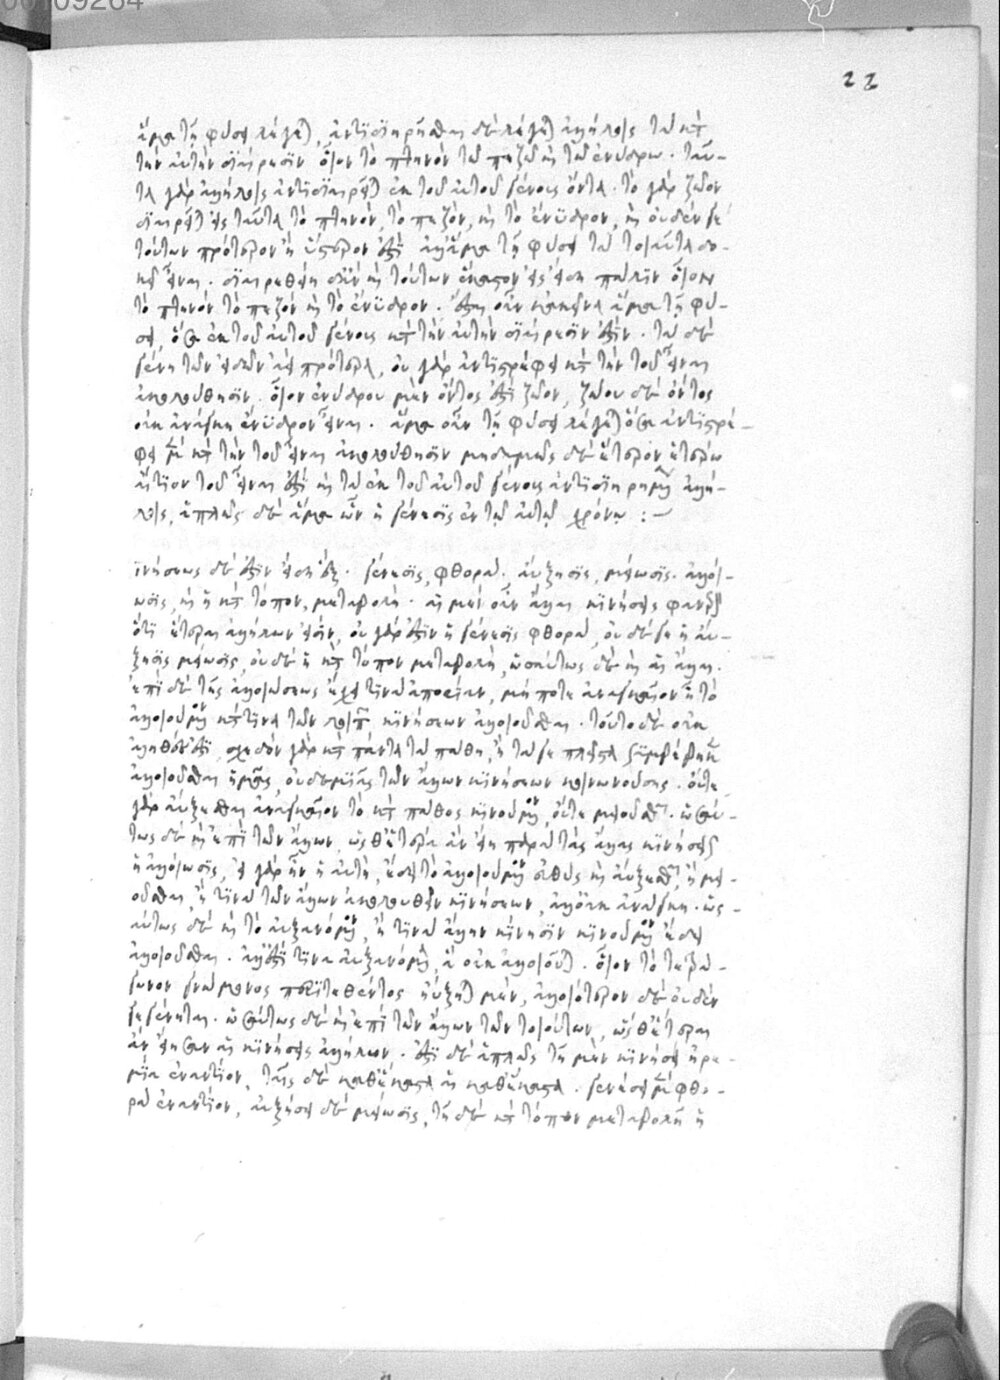 00109264
22
ἅμα τῇ φύσει λέγεται, ἀντιδιῃρῆσθαι δὲ λέγεται ἀλλήλοις τὰ κατὰ
τὴν αὐτὴν διαίρεσιν οἷον τὸ πτηνὸν τῷ πεζῷ καὶ τῷ ἐνύδρῳ. ταῦ-
τα γὰρ ἀλλήλοις ἀντιδιαιρεῖται ἐκ τοῦ αὐτοῦ γένους ὄντα. τὸ γὰρ ζῶον
διαιρεῖται εἰς ταῦτα, τὸ πτηνὸν, τὸ πεζὸν, καὶ τὸ ἔνυδρον, καὶ οὐδέν γε
τούτων πρότερον ἢ ὕστερον ἐστὶ ἀλλ' ἅμα τῇ φύσει τὰ τοιαῦτα δο-
κεῖ εἶναι. διαιρεθείη δ' ἂν καὶ τούτων ἕκαστον εἰς εἴδη πάλιν οἷον
τὸ πτηνὸν τὸ πεζὸν καὶ τὸ ἔνυδρον. ἔσται οὖν κἀκεῖνα ἅμα τῇ φύ-
σει, ὅσα ἐκ τοῦ αὐτοῦ γένους κατὰ τὴν αὐτὴν διαίρεσιν ἐστίν. τὰ δὲ
γένη τῶν εἰδῶν ἀεὶ πρότερα, οὐ γὰρ ἀντιστρέφει κατὰ τὴν τοῦ εἶναι
ἀκολούθησιν. οἷον ἐνύδρου μὲν ὄντος ἐστὶ ζῶον, ζώου δὲ ὄντος
οὐκ ἀνάγκη ἔνυδρον εἶναι. ἅμα οὖν τῇ φύσει λέγεται ὅσα ἀντιστρέ-
φει μὲν κατὰ τὴν τοῦ εἶναι ἀκολούθησιν μηδαμῶς δὲ ἕτερον ἑτέρῳ
αἴτιον τοῦ εἶναι ἐστὶ καὶ τὰ ἐκ τοῦ αὐτοῦ γένους ἀντιδιῃρημένα ἀλλή-
λοις, ἁπλῶς δὲ ἅμα ὧν ἡ γένεσις ἐν τῷ αὐτῷ χρόνῳ :—
κινήσεως δὲ ἐστὶν εἴδη ἕξ. γένεσις, φθορά. αὔξησις, μείωσις. ἀλλοί-
ωσις, καὶ ἡ κατὰ τόπον, μεταβολή. αἱ μὲν οὖν ἄλλαι κινήσεις φανερὸν
ὅτι ἕτεραι ἀλλήλων εἰσίν, οὐ γὰρ ἐστὶν ἡ γένεσις φθορὰ, οὐδέ γε ἡ αὔ-
ξησις μείωσις, οὐδὲ ἡ κατὰ τόπον μεταβολή, ὡσαύτως δὲ καὶ αἱ ἄλλαι.
ἐπὶ δὲ τῆς ἀλλοιώσεως ἔχει τινὰ ἀπορίαν, μή ποτε ἀναγκαῖον ᾖ τὸ
ἀλλοιούμενον κατά τινα τῶν λοιπῶν κινήσεων ἀλλοιοῦσθαι. τοῦτο δὲ οὐκ
ἀληθὲς ἐστὶ, σχεδὸν γὰρ κατὰ πάντα τὰ πάθη ἢ τά γε πλεῖστα συμβέβηκεν
ἀλλοιοῦσθαι ἡμᾶς, οὐδεμιᾶς τῶν ἄλλων κινήσεων κοινωνούσης. οὔτε
γὰρ αὔξεσθαι ἀναγκαῖον τὸ κατὰ πάθος κινούμενον, οὔτε μειοῦσθαι. ὡσαύ-
τως δὲ καὶ ἐπὶ τῶν ἄλλων, ὥσθ' ἑτέρα ἂν εἴη παρὰ τὰς ἄλλας κινήσεις
ἡ ἀλλοίωσις, εἰ γὰρ ἦν ἡ αὐτὴ, ἔδει τὸ ἀλλοιούμενον εὐθὺς καὶ αὔξεσθαι, ἢ μει-
οῦσθαι, ἤ τινα τῶν ἄλλων ἀκολουθεῖν κινήσεων, ἀλλ' οὐκ ἀνάγκη. ὡσ-
αύτως δὲ καὶ τὸ αὐξανόμενον, ἤ τινα ἄλλην κίνησιν κινούμενον ἔδει
ἀλλοιοῦσθαι. ἀλλ' ἐστί τινα αὐξανόμενα, ἃ οὐκ ἀλλοιοῦται. οἷον τὸ τετρά-
γωνον γνώμονος περιτεθέντος ηὔξηται μὲν, ἀλλοιότερον δὲ οὐδὲν
γεγένηται. ὡσαύτως δὲ καὶ ἐπὶ τῶν ἄλλων τῶν τοιούτων, ὥσθ' ἕτεραι
ἂν εἴησαν αἱ κινήσεις ἀλλήλων. ἐστὶ δὲ ἁπλῶς τῇ μὲν κινήσει ἠρε-
μία ἐναντίον, ταῖς δὲ καθ' ἕκαστα ἡ καθ' ἕκαστα. γενέσει μὲν φθο-
ρὰ ἐναντίον, αὐξήσει δὲ μείωσις, τῇ δὲ κατὰ τόπον μεταβολῇ ἡ